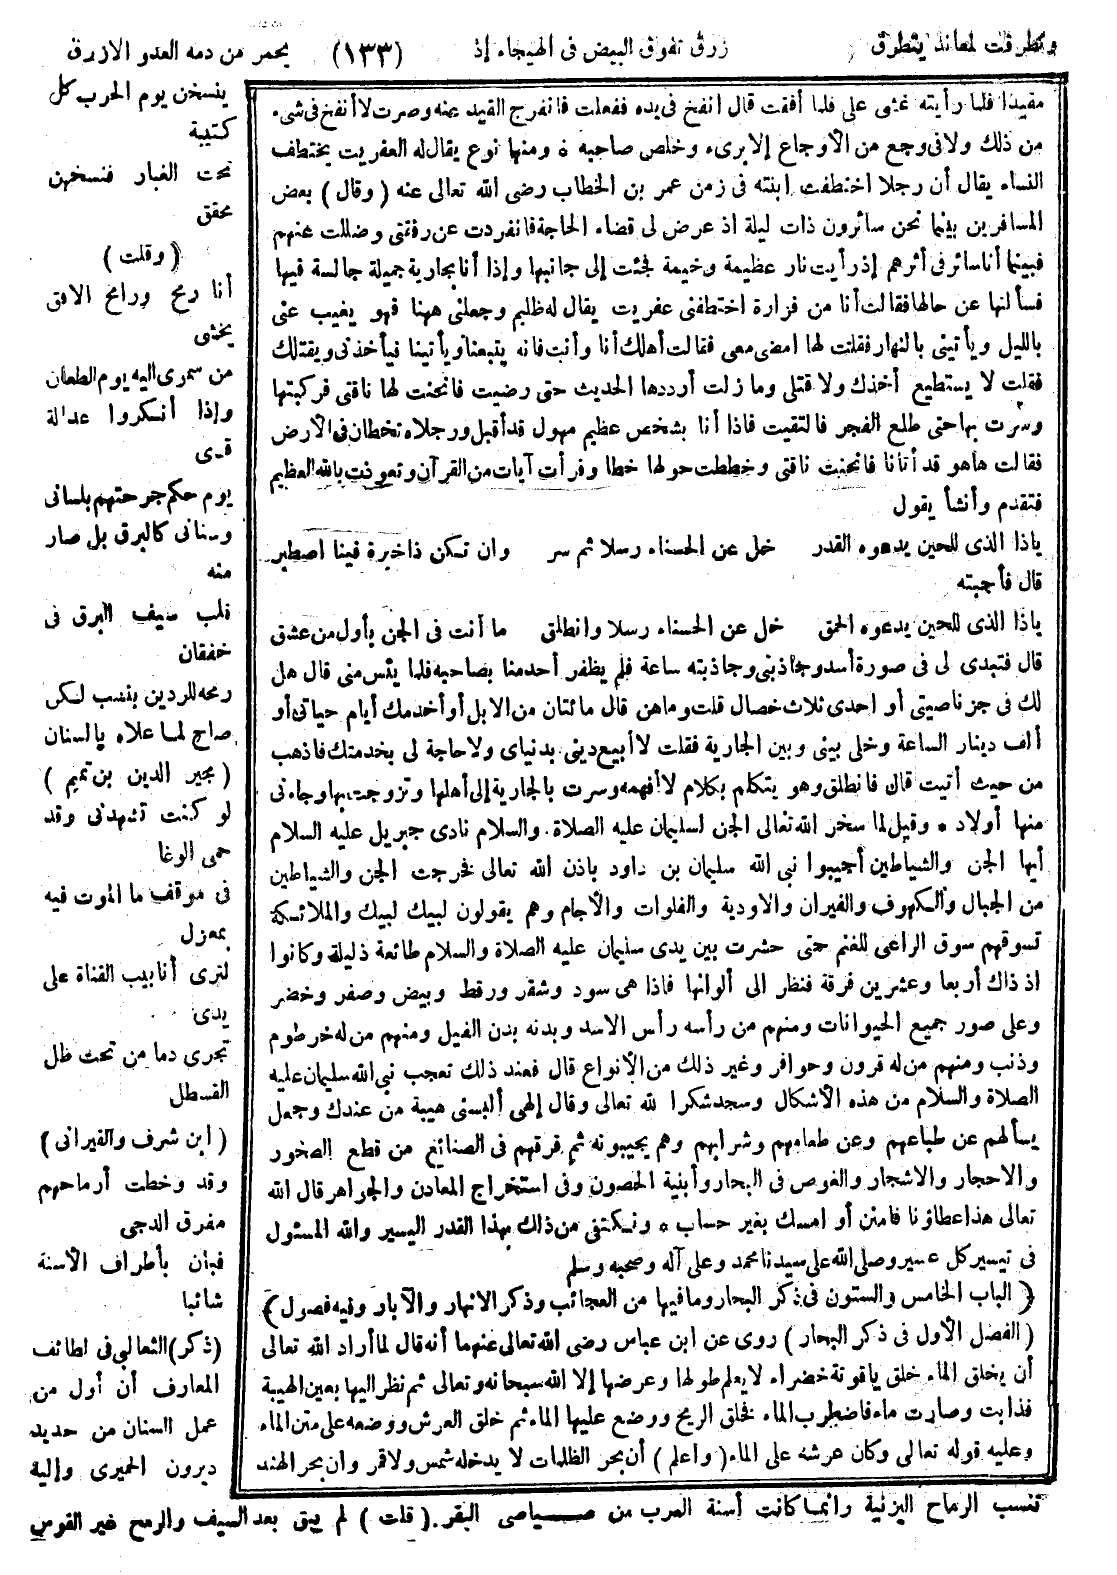 وتطرقت لمعاند يتطرق زرق تفوق البيض فى الهيجاء إذ (١٣٣) يحمر من دمه العدو الازرق
مقيدا فلما رأيته غشى على فلما أفقت قال انفخ فى يده ففعلت فانفرج القيد عنه وصرت لا أنفخ فى شىء
من ذلك ولا فى وجع من الأوجاع إلا برىء وخلص صاحبه ٥ ومنها نوع يقال له العفريت يختطف
النساء يقال أن رجلا اختطفت ابنته فى زمن عمر بن الخطاب رضى الله تعالى عنه (وقال) بعض
المسافرين بينما نحن سائرون ذات ليلة اذ عرض لى قضاء الحاجة فانفردت عن رفقتى وضللت عنهم
فبينما أنا سائر فى أثرهم إذ رأيت نار عظيمة وخيمة فجئت إلى جانبها وإذا أنا بجارية جميلة جالسة فيها
فسألتها عن حالها فقالت أنا من فزارة اختطفنى عفريت يقال له ظليم وجعلنى ههنا فهو يغيب عنى
بالليل ويأتينى بالنهار فقلت لها امضى معى فقالت أهلك أنا وأنت فانه يتبعنا ويأتينا فيأخذنى ويقتلك
فقلت لا يستطيع أخذك ولا قتلى وما زلت أرددها الحديث حتى رضيت فانحنت لها ناقتى فركبتها
وسرت بها حتى طلع الفجر فالتفت فاذا أنا بشخص عظيم مهول قد أقبل ورجلاه تخطان فى الأرض
فقالت ها هو قد أتانا فانحنت ناقتى وخططت حولها خطا وقرأت آيات من القرآن وتعوذت بالله العظيم
فتقدم وأنشأ يقول
ياذا الذى للحين يدعوه القدر خل عن الحسناء رسلا ثم سر وان تكن ذا خبرة فينا اصطبر
قال فأجبته
ياذا الذى للحين يدعوه الحمق خل عن الحسناء رسلا وانطلق ما أنت فى الجن بأول من عشق
قال فتبدى لى فى صورة أسد وجاذبنى وجاذبته ساعة فلم يظفر أحد منا بصاحبه فلما يئس منى قال هل
لك فى جز ناصيتى أو احدى ثلاث خصال قلت وما هن قال مائتان من الابل أو أخدمك أيام حياتى أو
ألف دينار الساعة وخلى بينى وبين الجارية فقلت لا أبيع دينى بدنياى ولا حاجة لى بخدمتك فاذهب
من حيث أتيت قال فانطلق وهو يتكلم بكلام لا أفهمه وسرت بالجارية إلى أهلها وتزوجت بها وجاءنى
منها أولاد ٥ وقيل لما سخر الله تعالى الجن لسليمان عليه الصلاة والسلام نادى جبريل عليه السلام
أيها الجن والشياطين أجيبوا نبى الله سليمان بن داود باذن الله تعالى فخرجت الجن والشياطين
من الجبال والكهوف والغيران والاودية والفلوات والآجام وهم يقولون لبيك لبيك والملائكة
تسوقهم سوق الراعى للغنم حتى حشرت بين يدى سليمان عليه الصلاة والسلام طائعة ذليلة وكانوا
اذ ذاك أربعا وعشرين فرقة فنظر الى ألوانها فاذا هى سود وشقر ورقط وبيض وصفر وخضر
وعلى صور جميع الحيوانات ومنهم من رأسه رأس الاسد وبدنه بدن الفيل ومنهم من له خرطوم
وذنب ومنهم من له قرون وحوافر وغير ذلك من الأنواع قال فعند ذلك تعجب نبى الله سليمان عليه
الصلاة والسلام من هذه الأشكال وسجد شكرا لله تعالى وقال إلهى ألبسنى هيبة من عندك وجعل
يسألهم عن طباعهم وعن طعامهم وشرابهم وهم يجيبونه ثم فرقهم فى الصنائع من قطع الصخور
والاحجار والاشجار والغوص فى البحار وأبنية الحصون وفى استخراج المعادن والجواهر قال الله
تعالى هذا عطاؤنا فامنن أو امسك بغير حساب ٥ ونكتفى من ذلك بهذا القدر اليسير والله المسئول
فى تيسير كل عسير وصلى الله على سيدنا محمد وعلى آله وصحبه وسلم
(الباب الخامس والستون فى ذكر البحار وما فيها من العجائب وذكر الانهار والآبار وفيه فصول)
(الفصل الأول فى ذكر البحار) روى عن ابن عباس رضى الله تعالى عنهما أنه قال لما أراد الله تعالى
أن يخلق الماء خلق ياقوتة خضراء لا يعلم طولها وعرضها إلا الله سبحانه وتعالى ثم نظر اليها بعين الهيبة
فذابت وصارت ماء فاضطرب الماء فخلق الريح ووضع عليها الماء ثم خلق العرش ووضعه على متن الماء
وعليه قوله تعالى وكان عرشه على الماء (واعلم) أن بحر الظلمات لا يدخله شمس ولا قمر وان بحر الهند
ينسخن يوم الحرب كل
كتيبة
تحت الغبار فنسخهن
محقق
(وقلت)
أنا رمح ورامح الافق
يخشى
من سمرى اليه يوم الطعان
وإذا أنكروا عدالة
قدى
يوم حكم جرحتهم بلسانى
وسنانى كالبرق بل صار
منه
قلب سيف البرق فى
خفقان
رمحه للردين ينسب لكن
صاح لما علاه يا لسنان
(مجير الدين بن تميم)
لو كنت تشهدنى وقد
حمى الوغا
فى موقف ما الموت فيه
بمعزل
لترى أنابيب القناة على
يدى
تجرى دما من تحت ظل
القسطل
(ابن شرف والقيرانى)
وقد وخطت أرماحهم
مفرق الدجى
فبان بأطراف الأسنة
شائبا
(ذكر) الثعالبى فى لطائف
المعارف أن أول من
عمل السنان من حديد
ديرون الحميرى وإلية
تنسب الرماح اليزنية وانما كانت أسنة العرب من صياصى البقر. (قلت) لم يبق بعد السيف والرمح غير القوس